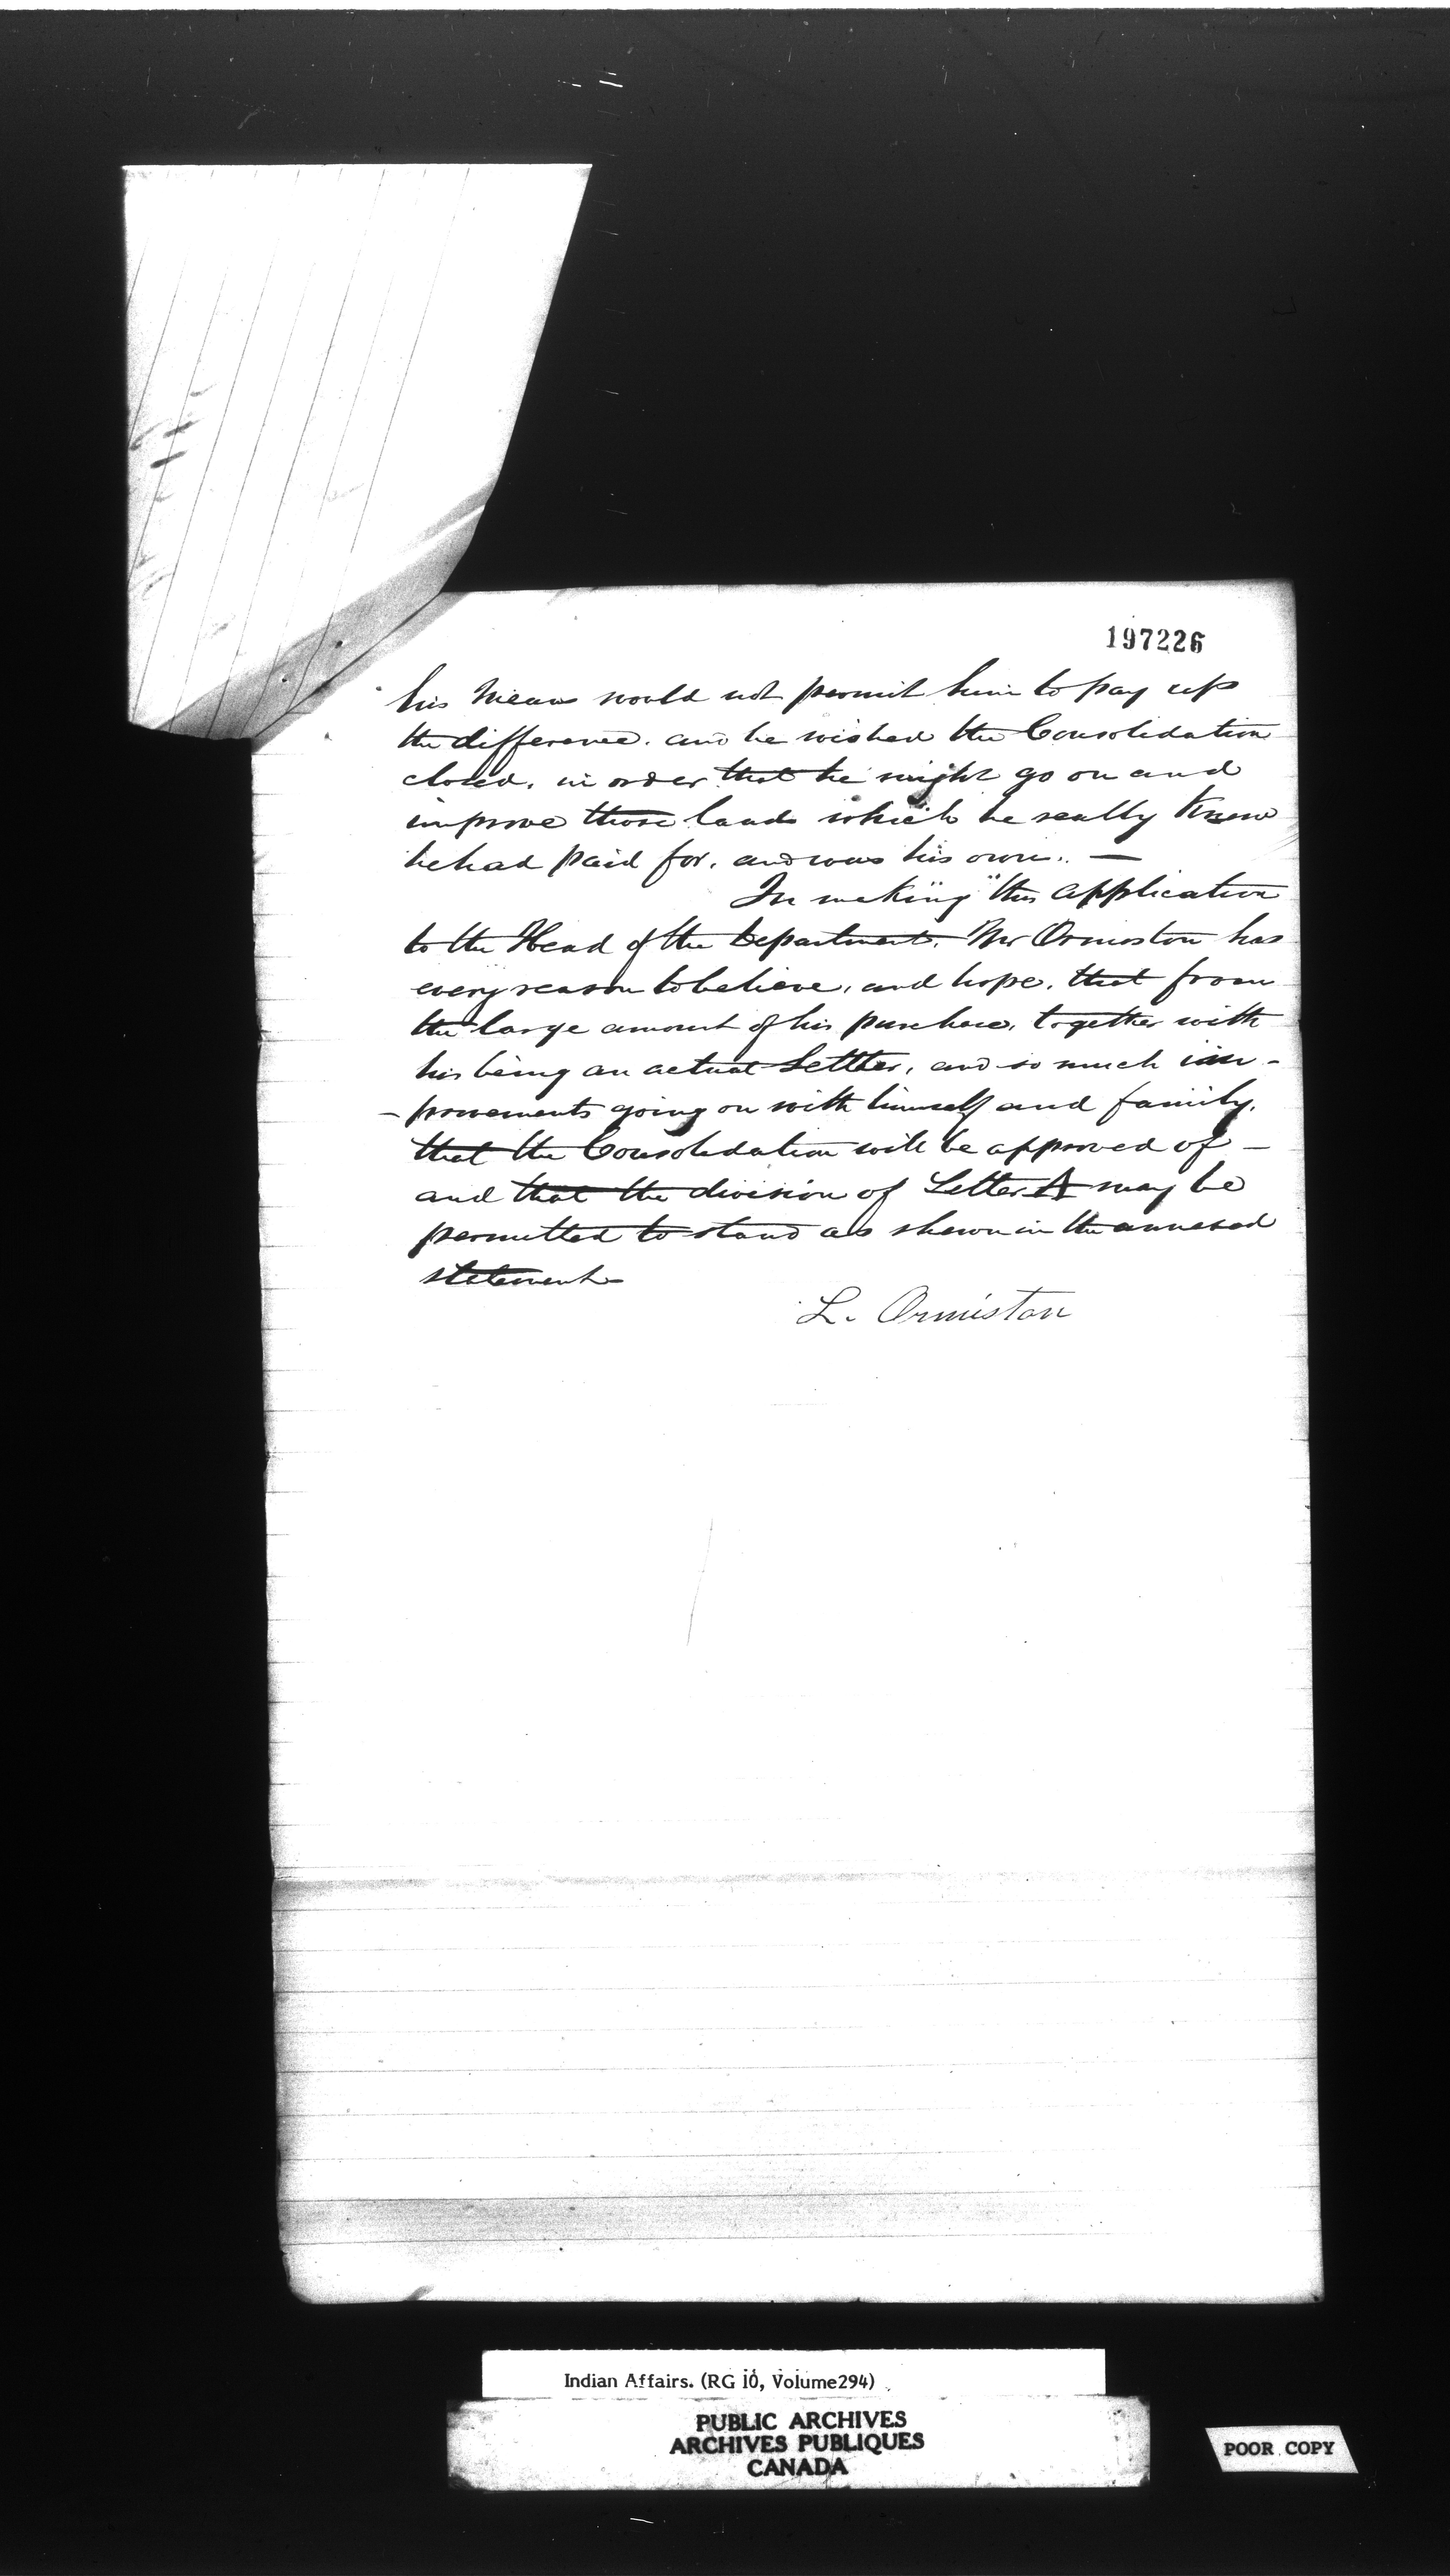 197226
his Means would not permit him to pay up
the difference. and he wished the Consolidation
closed, in order that he might go on and
improve those lands which he really Knew
he had paid for, and was his own. —
In making this application
to the Head of the Department. Mr Ormiston has
every reason to believe, and hope, that from
the large amount of his purchase, together with
his being an actual Settler, and so much im-
-provements going on with himself and family,
that the Consolidation will be approved of —
and that the division of Letter A may be
permitted to stand as shewn in the annexed
statement
L. Ormiston
Indian Affairs. (RG 10, Volume294)
PUBLIC ARCHIVES
ARCHIVES PUBLIQUES
CANADA
POOR COPY